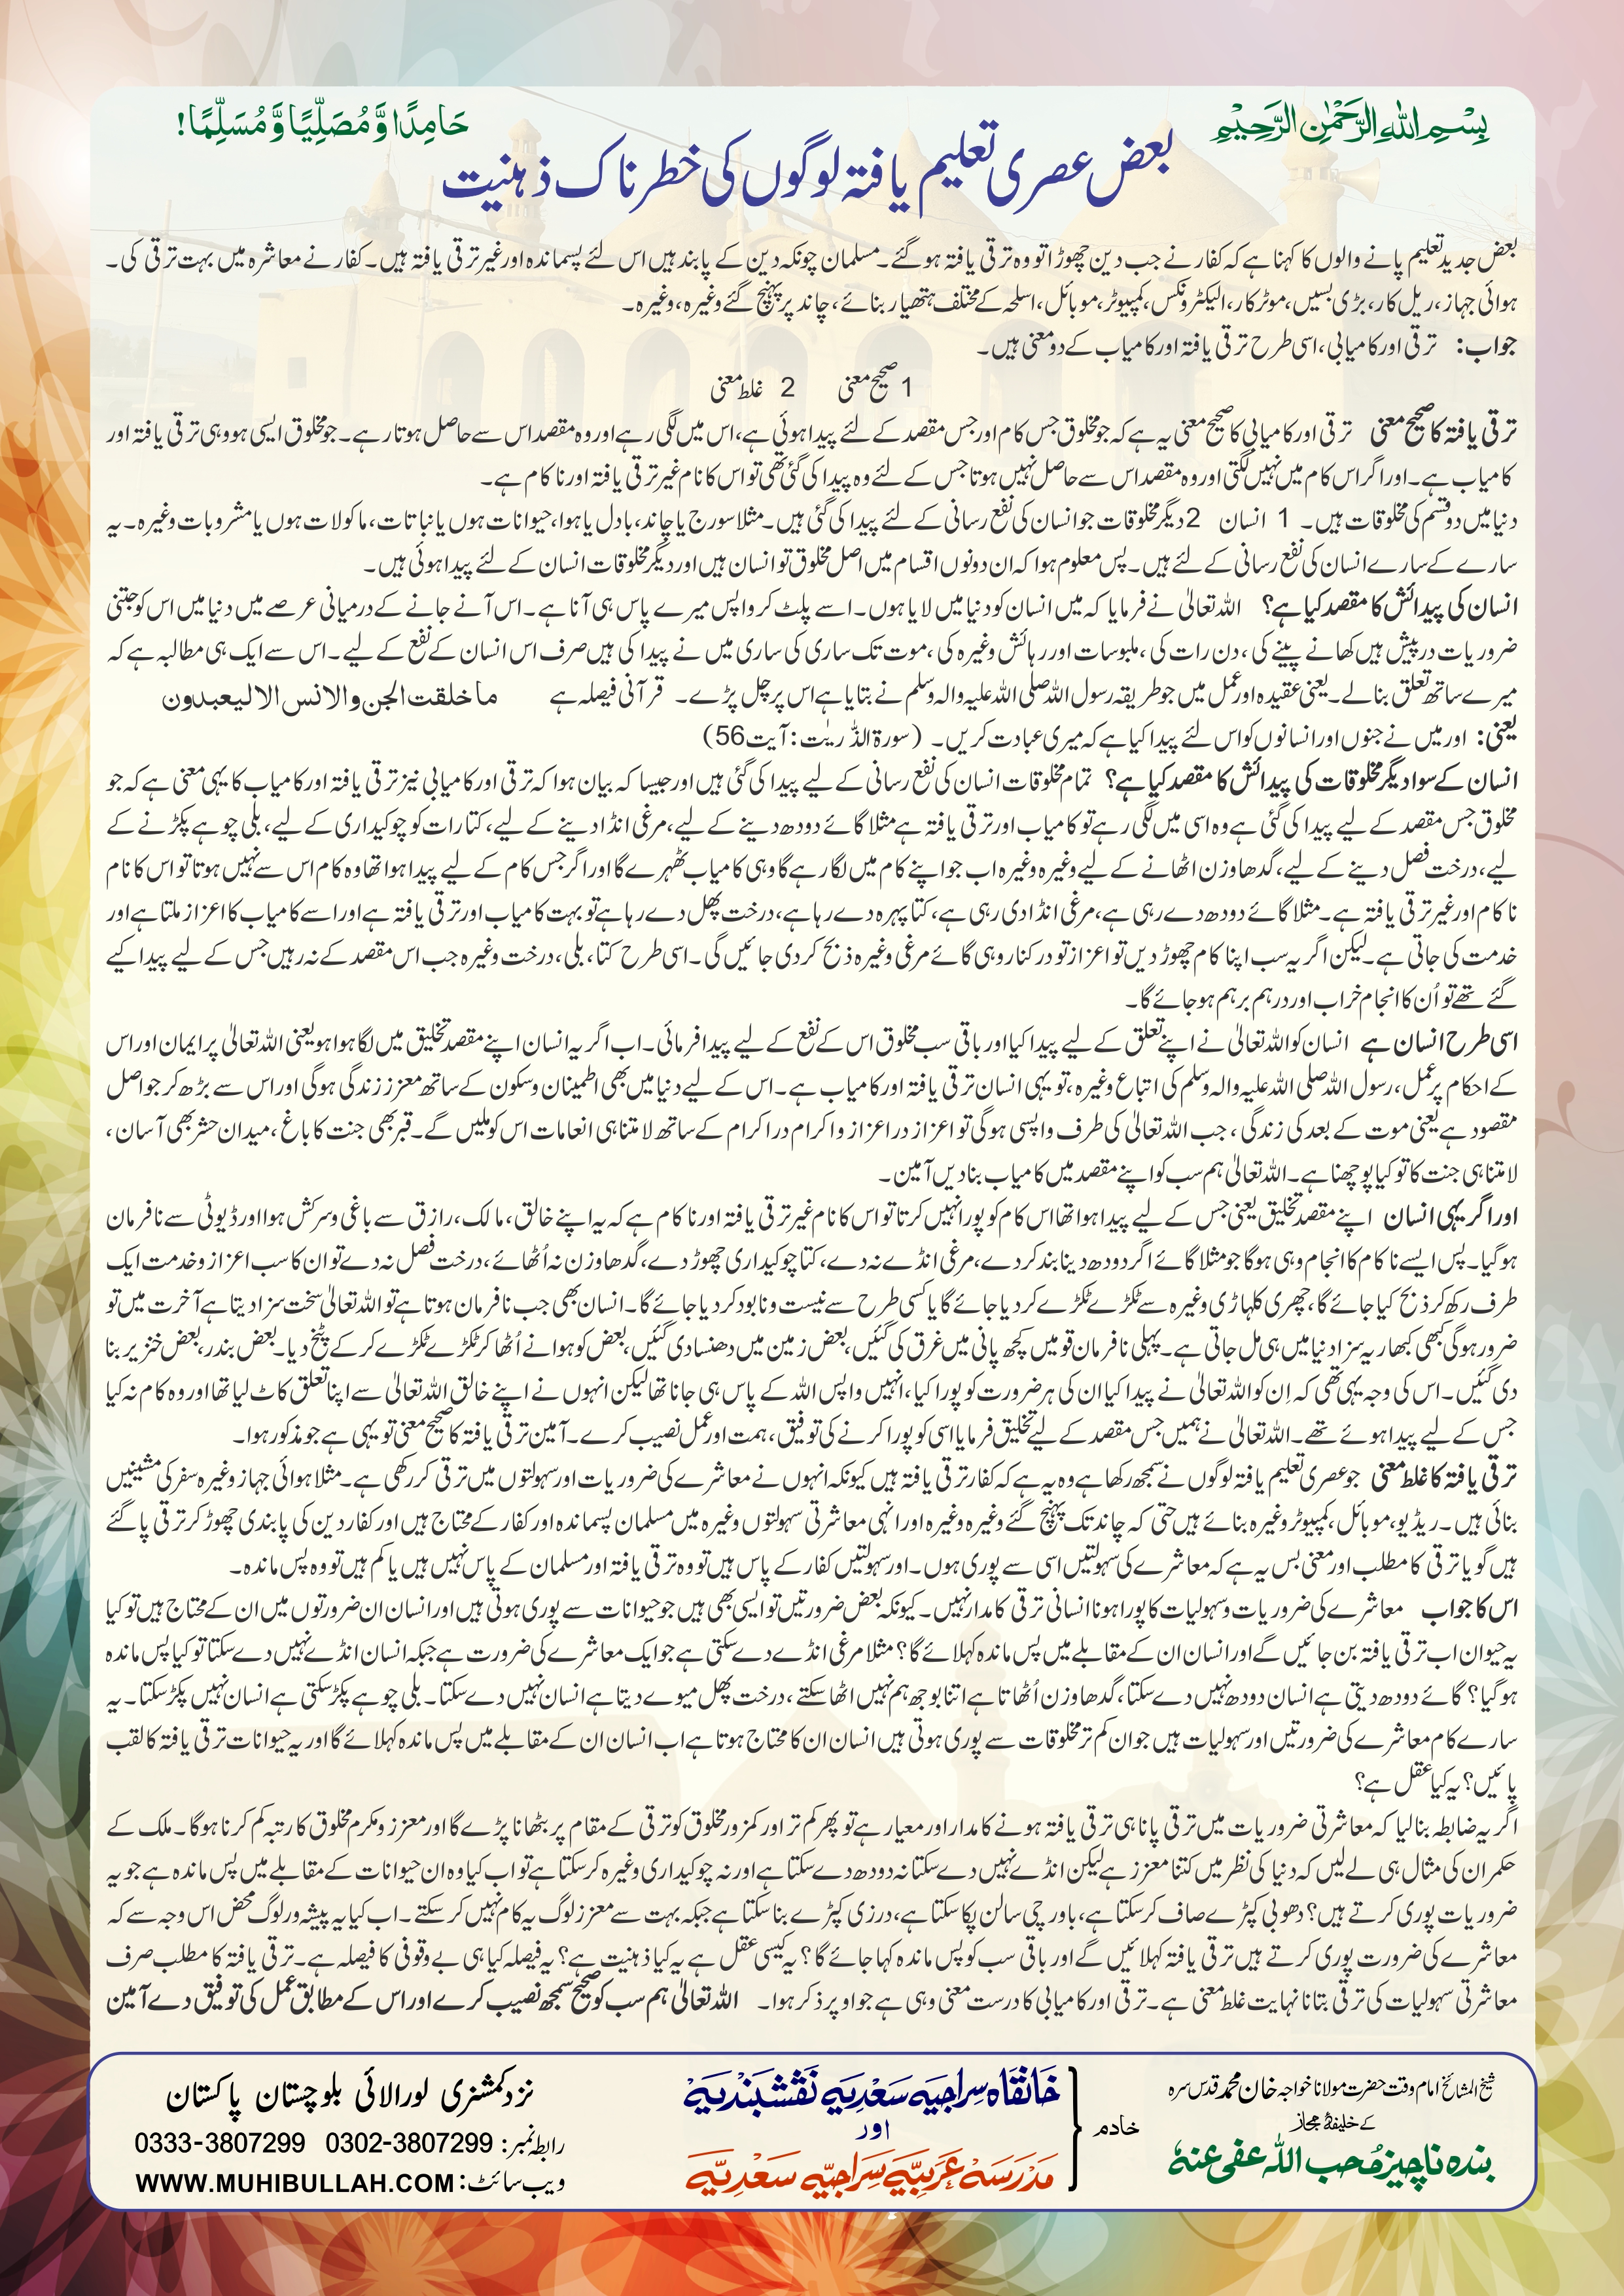 بِسْمِ اللّٰهِ الرَّحْمٰنِ الرَّحِيْمِ
حَامِدًا وَّمُصَلِّيًا وَّمُسَلِّمًا!
بعض عصری تعلیم یافتہ لوگوں کی خطرناک ذہنیت
بعض جدید تعلیم پانے والوں کا کہنا ہے کہ کفار نے جب دین چھوڑا تو وہ ترقی یافتہ ہو گئے۔ مسلمان چونکہ دین کے پابند ہیں اس لئے پسماندہ اور غیر ترقی یافتہ ہیں۔ کفار نے معاشرہ میں بہت ترقی کی۔
ہوائی جہاز، ریل کار، بڑی بسیں، موٹر کار، الیکٹرونکس، کمپیوٹر، موبائل، اسلحہ کے مختلف ہتھیار بنائے، چاند پر پہنچ گئے وغیرہ، وغیرہ۔
جواب: ترقی اور کامیابی، اسی طرح ترقی یافتہ اور کامیاب کے دو معنی ہیں۔
1 صحیح معنی 2 غلط معنی
ترقی یافتہ کا صحیح معنی ترقی اور کامیابی کا صحیح معنی یہ ہے کہ جو مخلوق جس کام اور جس مقصد کے لئے پیدا ہوئی ہے، اس میں لگی رہے اور وہ مقصد اس سے حاصل ہوتا رہے۔ جو مخلوق ایسی ہو وہی ترقی یافتہ اور
کامیاب ہے۔ اور اگر اس کام میں نہیں لگتی اور وہ مقصد اس سے حاصل نہیں ہوتا جس کے لئے وہ پیدا کی گئی تھی تو اس کا نام غیر ترقی یافتہ اور ناکام ہے۔
دنیا میں دو قسم کی مخلوقات ہیں۔ 1 انسان 2 دیگر مخلوقات جو انسان کی نفع رسانی کے لئے پیدا کی گئی ہیں۔ مثلا سورج یا چاند، بادل یا ہوا، حیوانات ہوں یا نباتات، ماکولات ہوں یا مشروبات وغیرہ۔ یہ
سارے کے سارے انسان کی نفع رسانی کے لئے ہیں۔ پس معلوم ہوا کہ ان دونوں اقسام میں اصل مخلوق تو انسان ہیں اور دیگر مخلوقات انسان کے لئے پیدا ہوئی ہیں۔
انسان کی پیدائش کا مقصد کیا ہے؟ اللہ تعالیٰ نے فرمایا کہ میں انسان کو دنیا میں لایا ہوں۔ اسے پلٹ کر واپس میرے پاس ہی آنا ہے۔ اس آنے جانے کے درمیانی عرصے میں دنیا میں اس کو جتنی
ضروریات درپیش ہیں کھانے پینے کی، دن رات کی، ملبوسات اور رہائش وغیرہ کی، موت تک ساری کی ساری میں نے پیدا کی ہیں صرف اس انسان کے نفع کے لیے۔ اس سے ایک ہی مطالبہ ہے کہ
میرے ساتھ تعلق بنا لے۔ یعنی عقیدہ اور عمل میں جو طریقہ رسول اللہ صلی اللہ علیہ والہ وسلم نے بتایا ہے اس پر چل پڑے۔ قرآنی فیصلہ ہے ما خلقت الجن والانس الا ليعبدون
یعنی: اور میں نے جنوں اور انسانوں کو اس لئے پیدا کیا ہے کہ میری عبادت کریں۔ (سورۃ الذّٰریٰت: آیت 56)
انسان کے سوا دیگر مخلوقات کی پیدائش کا مقصد کیا ہے؟ تمام مخلوقات انسان کی نفع رسانی کے لیے پیدا کی گئی ہیں اور جیسا کہ بیان ہوا کہ ترقی اور کامیابی نیز ترقی یافتہ اور کامیاب کا یہی معنی ہے کہ جو
مخلوق جس مقصد کے لیے پیدا کی گئی ہے وہ اسی میں لگی رہے تو کامیاب اور ترقی یافتہ ہے مثلا گائے دودھ دینے کے لیے، مرغی انڈا دینے کے لیے، کتا رات کو چوکیداری کے لیے، بلی چوہے پکڑنے کے
لیے، درخت فصل دینے کے لیے، گدھا وزن اٹھانے کے لیے وغیرہ وغیرہ اب جو اپنے کام میں لگا رہے گا وہی کامیاب ٹھہرے گا اور اگر جس کام کے لیے پیدا ہوا تھا وہ کام اس سے نہیں ہوتا تو اس کا نام
ناکام اور غیر ترقی یافتہ ہے۔ مثلا گائے دودھ دے رہی ہے، مرغی انڈا دی رہی ہے، کتا پہرہ دے رہا ہے، درخت پھل دے رہا ہے تو بہت کامیاب اور ترقی یافتہ ہے اور اسے کامیاب کا اعزاز ملتا ہے اور
خدمت کی جاتی ہے۔ لیکن اگر یہ سب اپنا کام چھوڑ دیں تو اعزاز تو درکنار وہی گائے مرغی وغیرہ ذبح کر دی جائیں گی۔ اسی طرح کتا، بلی، درخت وغیرہ جب اس مقصد کے نہ رہیں جس کے لیے پیدا کیے
گئے تھے تو اُن کا انجام خراب اور درہم برہم ہو جائے گا۔
اسی طرح انسان ہے انسان کو اللہ تعالیٰ نے اپنے تعلق کے لیے پیدا کیا اور باقی سب مخلوق اس کے نفع کے لیے پیدا فرمائی۔ اب اگر یہ انسان اپنے مقصد تخلیق میں لگا ہوا ہو یعنی اللہ تعالیٰ پر ایمان اور اس
کے احکام پر عمل، رسول اللہ صلی اللہ علیہ والہ وسلم کی اتباع وغیرہ، تو یہی انسان ترقی یافتہ اور کامیاب ہے۔ اس کے لیے دنیا میں بھی اطمینان وسکون کے ساتھ معزز زندگی ہوگی اور اس سے بڑھ کر جو اصل
مقصود ہے یعنی موت کے بعد کی زندگی، جب اللہ تعالیٰ کی طرف واپسی ہوگی تو اعزاز در اعزاز و اکرام در اکرام کے ساتھ لا متناہی انعامات اس کو ملیں گے۔ قبر بھی جنت کا باغ، میدان حشر بھی آسان،
لامتناہی جنت کا تو کیا پوچھنا ہے۔ اللہ تعالیٰ ہم سب کو اپنے مقصد میں کامیاب بنا دیں آمین۔
اور اگر یہی انسان اپنے مقصد تخلیق یعنی جس کے لیے پیدا ہوا تھا اس کام کو پورا نہیں کرتا تو اس کا نام غیر ترقی یافتہ اور ناکام ہے کہ یہ اپنے خالق، مالک، رازق سے باغی و سرکش ہوا اور ڈیوٹی سے نافرمان
ہو گیا۔ پس ایسے ناکام کا انجام وہی ہوگا جو مثلا گائے اگر دودھ دینا بند کر دے، مرغی انڈے نہ دے، کتا چوکیداری چھوڑ دے، گدھا وزن نہ اُٹھائے، درخت فصل نہ دے تو ان کا سب اعزاز و خدمت ایک
طرف رکھ کر ذبح کیا جائے گا، چھری کلہاڑی وغیرہ سے ٹکڑے ٹکڑے کر دیا جائے گا یا کسی طرح سے نیست و نابود کر دیا جائے گا۔ انسان بھی جب نافرمان ہوتا ہے تو اللہ تعالیٰ سخت سزا دیتا ہے آخرت میں تو
ضرور ہوگی کبھی کبھار یہ سزا دنیا میں ہی مل جاتی ہے۔ پہلی نافرمان قومیں کچھ پانی میں غرق کی گئیں، بعض زمین میں دھنسا دی گئیں، بعض کو ہوا نے اُٹھا کر ٹکڑے ٹکڑے کر کے پٹخ دیا۔ بعض بندر، بعض خنزیر بنا
دی گئیں۔ اس کی وجہ یہی تھی کہ اِن کو اللہ تعالیٰ نے پیدا کیا ان کی ہر ضرورت کو پورا کیا، انہیں واپس اللہ کے پاس ہی جانا تھا لیکن انہوں نے اپنے خالق اللہ تعالیٰ سے اپنا تعلق کاٹ لیا تھا اور وہ کام نہ کیا
جس کے لیے پیدا ہوئے تھے۔ اللہ تعالیٰ نے ہمیں جس مقصد کے لیے تخلیق فرمایا اسی کو پورا کرنے کی توفیق، ہمت اور عمل نصیب کرے۔ آمین ترقی یافتہ کا صحیح معنی تو یہی ہے جو مذکور ہوا۔
ترقی یافتہ کا غلط معنی جو عصری تعلیم یافتہ لوگوں نے سمجھ رکھا ہے وہ یہ ہے کہ کفار ترقی یافتہ ہیں کیونکہ انہوں نے معاشرے کی ضروریات اور سہولتوں میں ترقی کر رکھی ہے۔ مثلا ہوائی جہاز وغیرہ سفر کی مشینیں
بنائی ہیں۔ ریڈیو، موبائل، کمپیوٹر وغیرہ بنائے ہیں حتی کہ چاند تک پہنچ گئے وغیرہ وغیرہ اور انہی معاشرتی سہولتوں وغیرہ میں مسلمان پسماندہ اور کفار کے محتاج ہیں اور کفار دین کی پابندی چھوڑ کر ترقی پا گئے
ہیں گویا ترقی کا مطلب اور معنی بس یہ ہے کہ معاشرے کی سہولتیں اسی سے پوری ہوں۔ اور سہولتیں کفار کے پاس ہیں تو وہ ترقی یافتہ اور مسلمان کے پاس نہیں ہیں یا کم ہیں تو وہ پس ماندہ۔
اس کا جواب معاشرے کی ضروریات و سہولیات کا پورا ہونا انسانی ترقی کا مدار نہیں۔ کیونکہ بعض ضرورتیں تو ایسی بھی ہیں جو حیوانات سے پوری ہوتی ہیں اور انسان ان ضرورتوں میں ان کے محتاج ہیں تو کیا
یہ حیوان اب ترقی یافتہ بن جائیں گے اور انسان ان کے مقابلے میں پس ماندہ کہلائے گا؟ مثلا مرغی انڈے دے سکتی ہے جو ایک معاشرے کی ضرورت ہے جبکہ انسان انڈے نہیں دے سکتا تو کیا پس ماندہ
ہو گیا؟ گائے دودھ دیتی ہے انسان دودھ نہیں دے سکتا، گدھا وزن اُٹھاتا ہے اتنا بوجھ ہم نہیں اٹھا سکتے، درخت پھل میوے دیتا ہے انسان نہیں دے سکتا۔ بلی چوہے پکڑ سکتی ہے انسان نہیں پکڑ سکتا۔ یہ
سارے کام معاشرے کی ضرورتیں اور سہولیات ہیں جو ان کم تر مخلوقات سے پوری ہوتی ہیں انسان ان کا محتاج ہوتا ہے اب انسان ان کے مقابلے میں پس ماندہ کہلائے گا اور یہ حیوانات ترقی یافتہ کا لقب
پائیں؟ یہ کیا عقل ہے؟
اگر یہ ضابطہ بنا لیا کہ معاشرتی ضروریات میں ترقی پانا ہی ترقی یافتہ ہونے کا مدار اور معیار ہے تو پھر کم تر اور کمزور مخلوق کو ترقی کے مقام پر بٹھانا پڑے گا اور معزز و مکرم مخلوق کا رتبہ کم کرنا ہوگا۔ ملک کے
حکمران کی مثال ہی لے لیں کہ دنیا کی نظر میں کتنا معزز ہے لیکن انڈے نہیں دے سکتا نہ دودھ دے سکتا ہے اور نہ چوکیداری وغیرہ کر سکتا ہے تو اب کیا وہ ان حیوانات کے مقابلے میں پس ماندہ ہے جو یہ
ضروریات پوری کرتے ہیں؟ دھوبی کپڑے صاف کر سکتا ہے، باورچی سالن پکا سکتا ہے، درزی کپڑے بنا سکتا ہے جبکہ بہت سے معزز لوگ یہ کام نہیں کر سکتے۔ اب کیا یہ پیشہ ور لوگ محض اس وجہ سے کہ
معاشرے کی ضرورت پوری کرتے ہیں ترقی یافتہ کہلائیں گے اور باقی سب کو پس ماندہ کہا جائے گا؟ یہ کیسی عقل ہے یہ کیا ذہنیت ہے؟ یہ فیصلہ کیا ہی بے وقوفی کا فیصلہ ہے۔ ترقی یافتہ کا مطلب صرف
معاشرتی سہولیات کی ترقی بتانا نہایت غلط معنی ہے۔ ترقی اور کامیابی کا درست معنی وہی ہے جو اوپر ذکر ہوا۔ اللہ تعالیٰ ہم سب کو صحیح سمجھ نصیب کرے اور اس کے مطابق عمل کی توفیق دے آمین
شیخ المشائخ امام وقت حضرت مولانا خواجہ خان محمد قدس سرہ
کے خلیفۂ مجاز
بندہ ناچیز مُحب اللہ عفی عنہٗ
خادم
خَانقَاہ سِراجیَہ سَعْدِیَہ نَقْشبَندِیَہ
اور
مَدْرَسَہ عَرَبِیَّہ سِرَاجیَّہ سَعْدِیَّہ
نزد کمشنری لورالائی بلوچستان پاکستان
رابطہ نمبر: 0302-3807299 0333-3807299
ویب سائٹ: WWW.MUHIBULLAH.COM